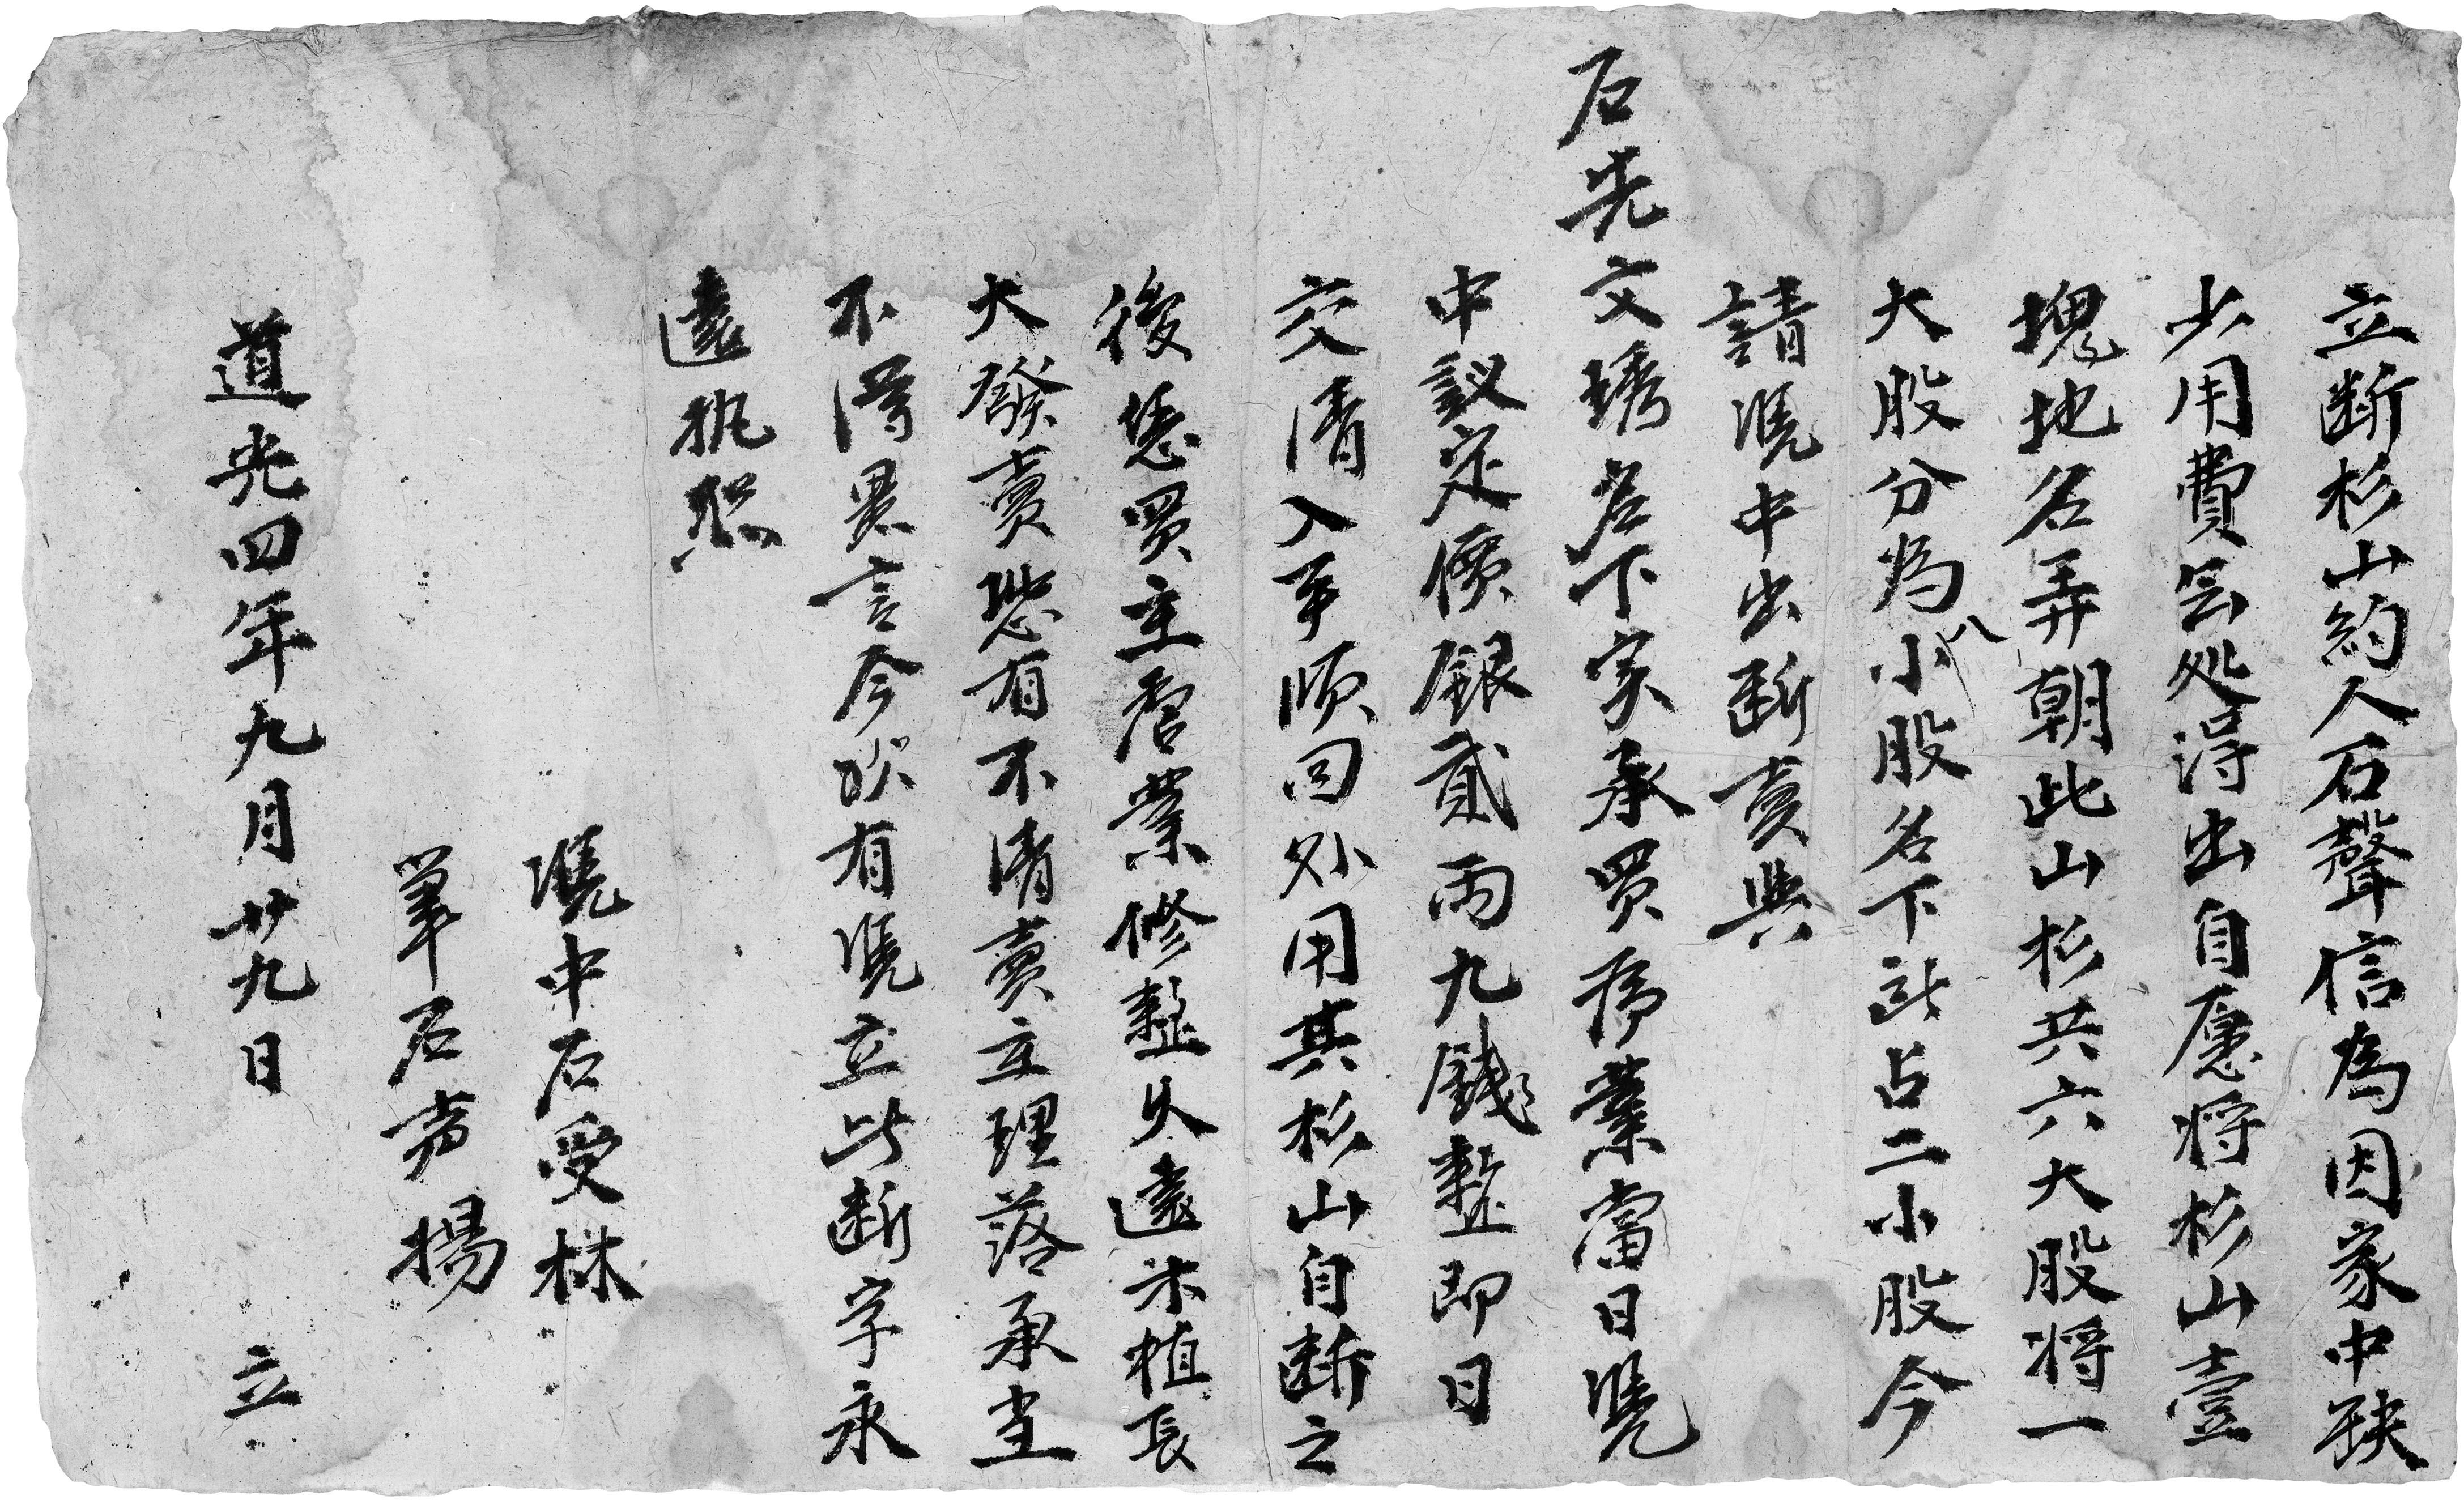 立断杉山約人石聲信為因家中缺
少用費無処得出自愿将杉山壹
塊地名弄朝此山杉共六大股将一
大股分為八小股名下詀占二小股今
請凴中出断賣與
石光文琇名下家承買為業當日凴
中議定價銀貳両九錢整即日
交清入手領回外用其杉山自断之
後恁買主管業修整久遠木植長
大發賣恐有不清賣主理落承当
不得異言今欲有凴立此断字永
遠执照
凴中石受林
筆石声揚
道光四年九月廿九日 立